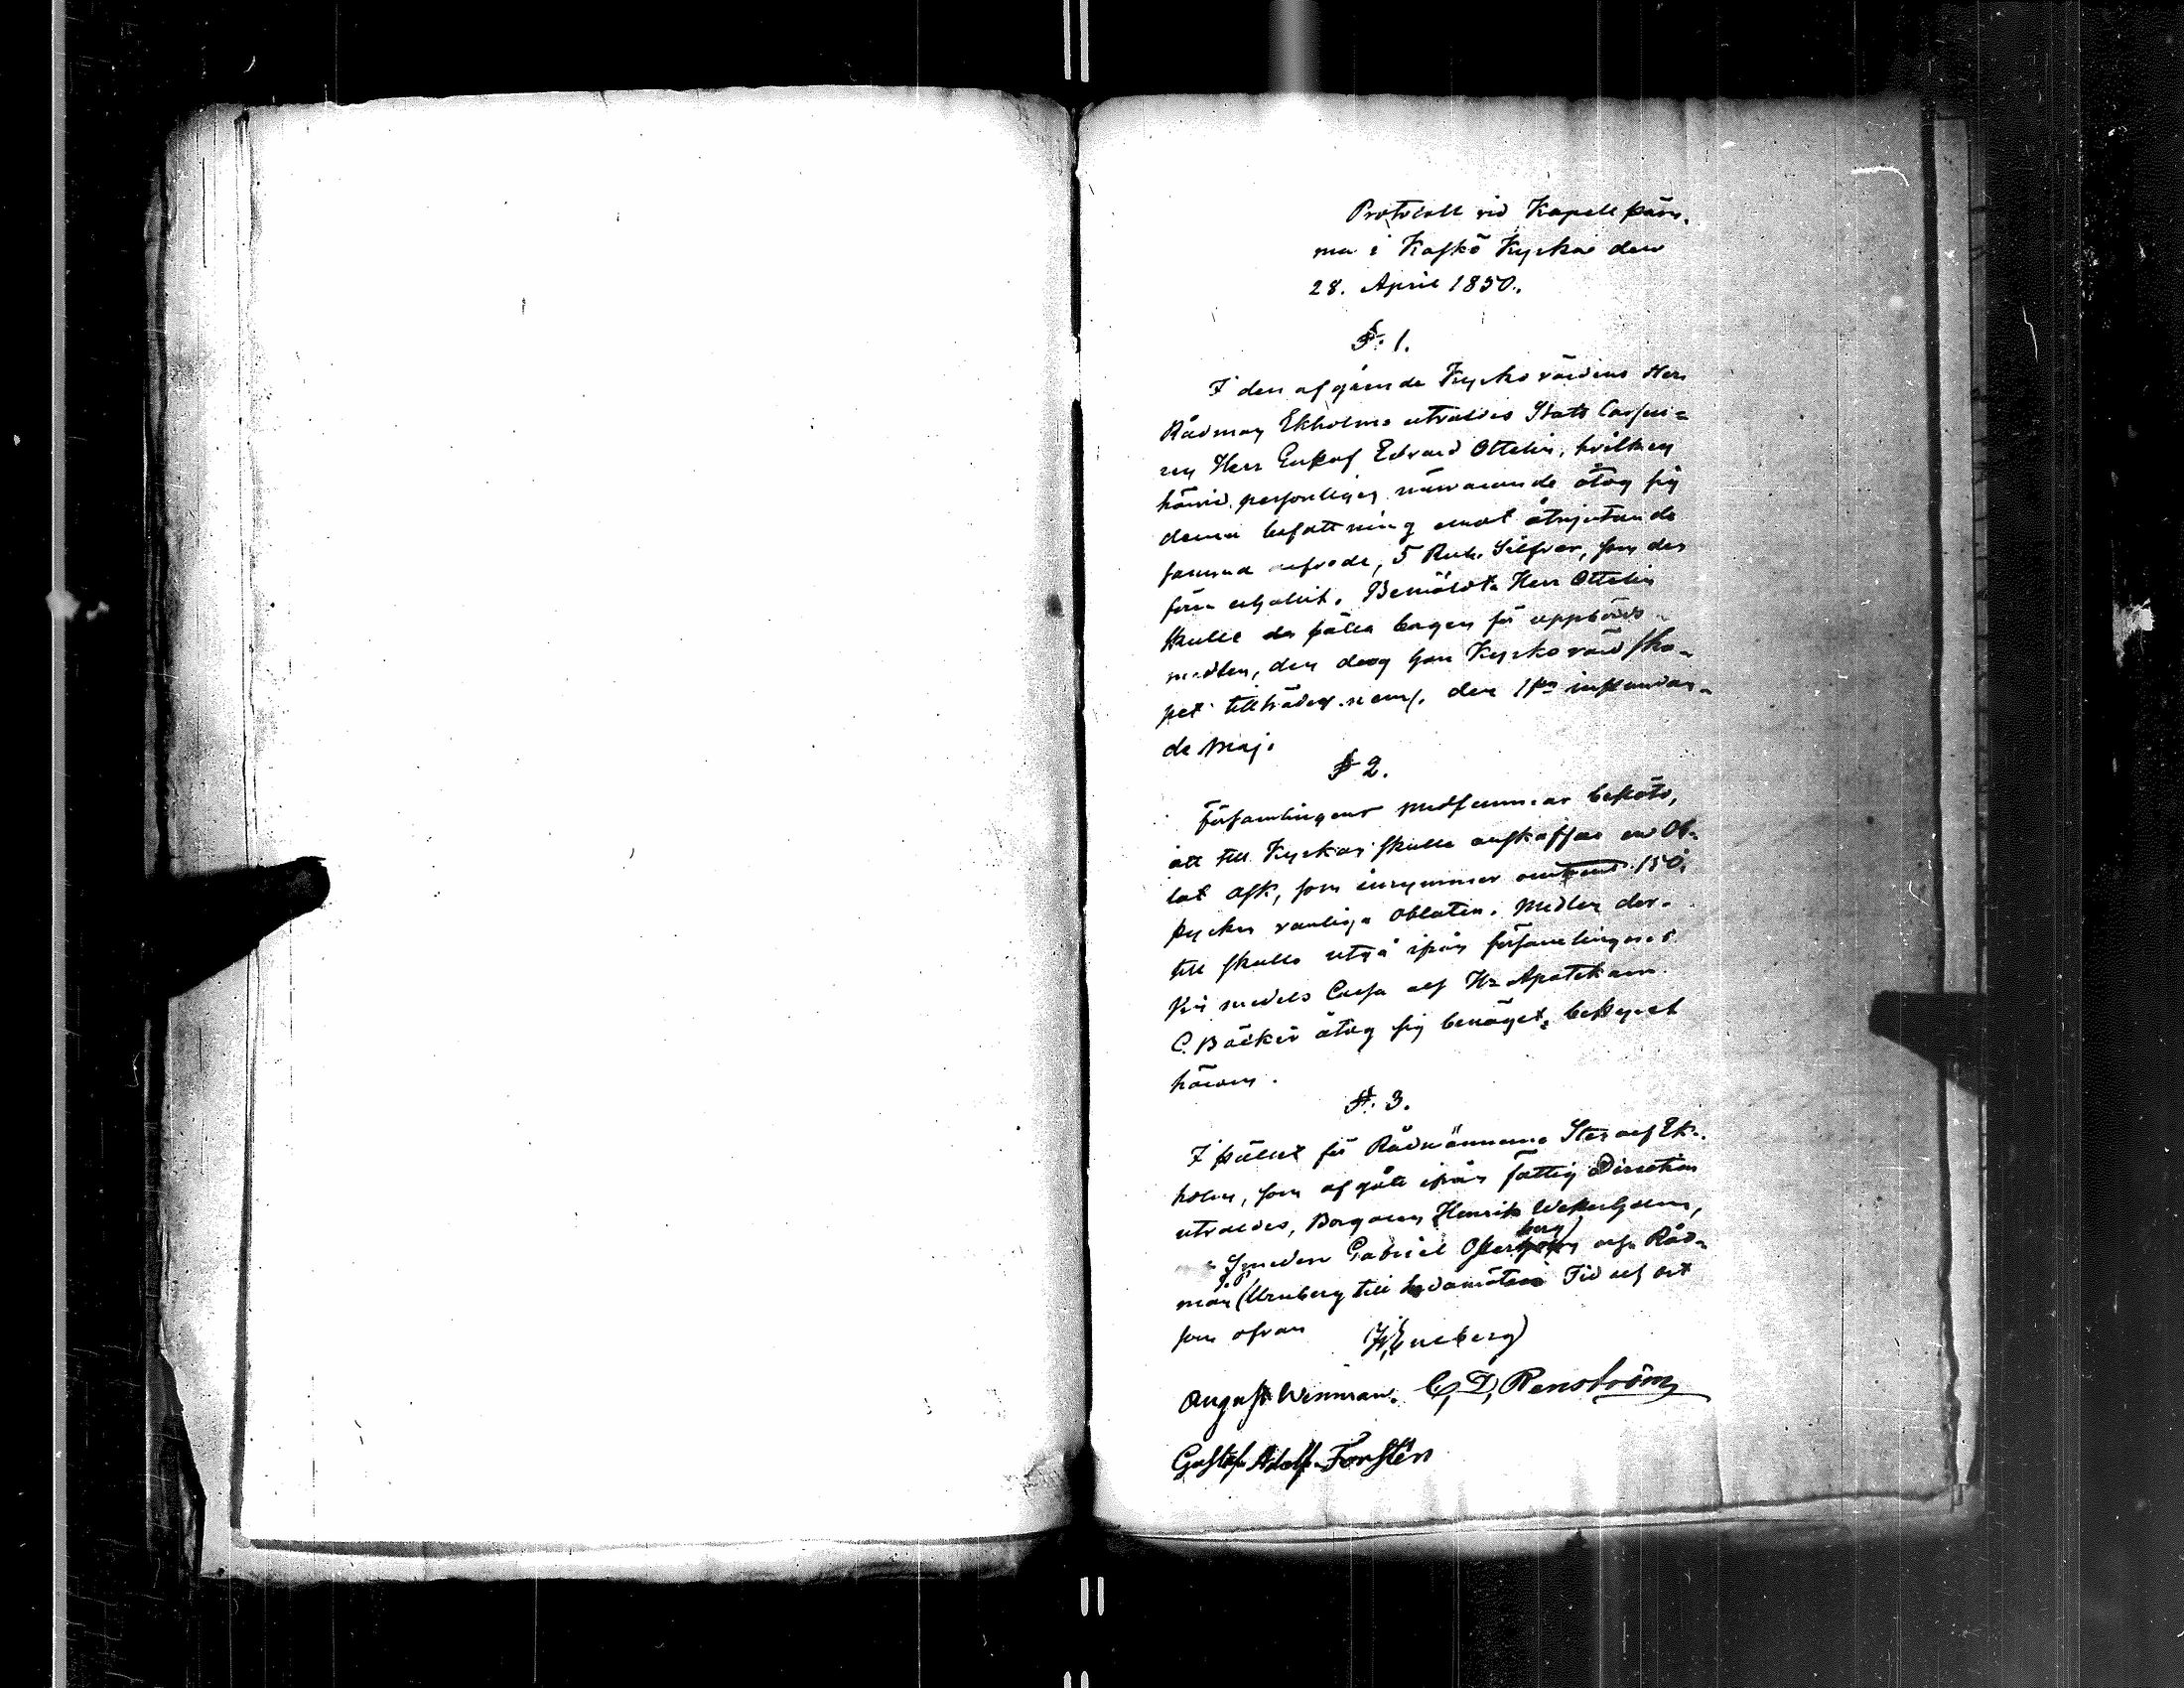 Protocoll vid Kapell stäm-
ma i Kaskö Kyrka den
28. April 1850.
§. 1.
I den afgående Kyrko värdens Herr
Rådman Ekholms utvaldes Stats Casseu-
ren Herr Gustaf Edvard Ottelin, hvilken
härvid personligen närvarande åtog sig
denna befattning emot åtnjutande
samma arfvode, 5 Rub. Silfver, som den
förra erhållit. Bemäldte Herr Ottelin
skulle då ställa borgen för uppbörds
medlen, den dag han Kyrko värd ska-
pet tillträder neml. den 1sta instundan-
de Maj.
§ 2.
Församlingens medlemmar beslöto,
att till Kyrkan skulle anskaffas en Ob-
lat ask, som inrymmer omtrent 150
stycken vanliga Oblater. Medlen der-
till skulle utgå ifrån församlingens
Vin medels Cassa och Hr Apotekaren
C. Bäcker åtog sig benäget bestyret
härom.
§. 3.
I stället för Rådmännerne Sten och Ek-
holm, som afgått ifrån fattig Direction
utvaldes, Borgaren Henrik Westerholm,
Smeden Gabriel Österberg och Råd-
man Uraberg till ledamöter Tid och ort
som ofvan (H. Eneberg)
August Wenman. C. D. Renström
Gustaf Adolf Forstén